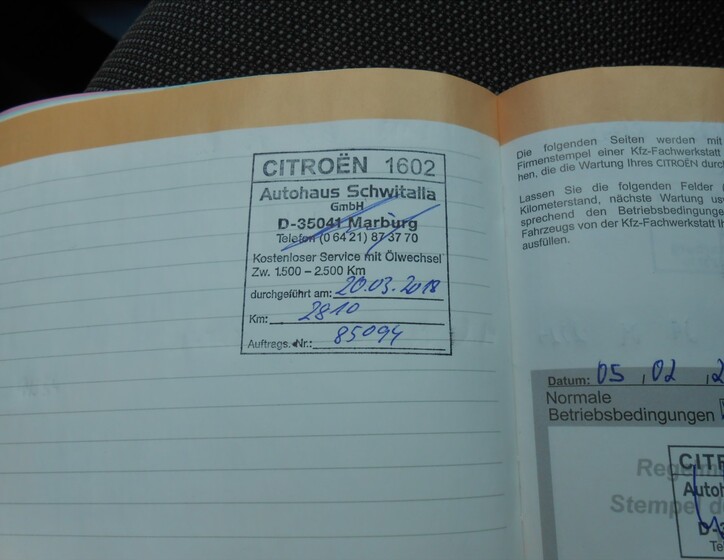 CITROËN 1602
Autohaus Schwitalla
GmbH
D-35041 Marburg
Telefon (0 64 21) 87 37 70
Kostenloser Service mit Ölwechsel
Zw. 1.500 - 2.500 Km
durchgeführt am: 20.03.2018
Km: 2810
Auftrags.-Nr.: 85094
Die folgenden Seiten werden mit
Firmenstempel einer Kfz-Fachwerkstatt
hen, die die Wartung Ihres CITROËN durc
Lassen Sie die folgenden Felder
Kilometerstand, nächste Wartung us
sprechend den Betriebsbedingunge
Fahrzeugs von der Kfz-Fachwerkstatt Ih
ausfüllen.
Datum: 05 , 02 , 2
Normale
Betriebsbedingungen
Stempel de
CITR
Autoh
D-3
Te